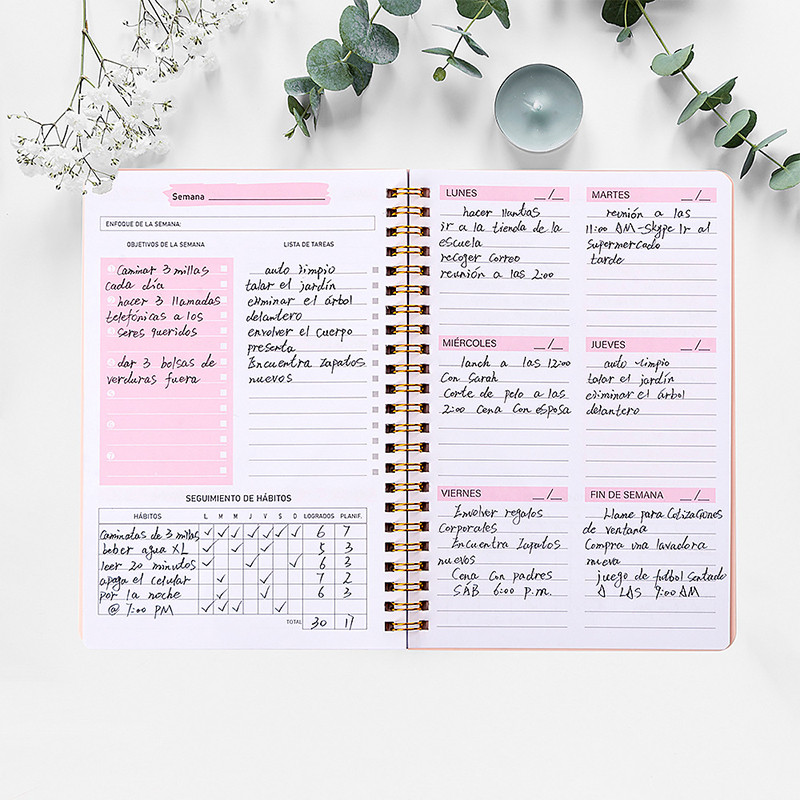 Semana
ENFOQUE DE LA SEMANA:
OBJETIVOS DE LA SEMANA
Caminar 3 millas
cada día
hacer 3 llamadas
telefónicas a los
seres queridos
dar 3 bolsas de
verduras fuera
LISTA DE TAREAS
auto limpio
talar el jardín
eliminar el árbol
delantero
envolver el cuerpo
presenta
Encuentra zapatos
nuevos
SEGUIMIENTO DE HÁBITOS
HÁBITOS L M M J V S D LOGRADOS PLANIF.
caminatas de 3 millas ✓ ✓ ✓ ✓ ✓ ✓ ✓ 6 7
beber agua XL ✓ ✓ ✓ 5 3
leer 20 minutos ✓ ✓ ✓ 6 3
apaga el celular ✓ ✓ 7 2
por la noche ✓ ✓ 6 3
@ 7:00 PM ✓ ✓ ✓ ✓
TOTAL 30 17
LUNES __/__
hacer llantas
ir a la tienda de la
escuela
recoger correo
reunión a las 2:00
MARTES __/__
reunión a las
11:00 AM - Skype Ir al
supermercado
tarde
MIÉRCOLES __/__
lanch a las 12:00
Con Sarah
Corte de pelo a las
2:00 Cena Con esposa
JUEVES __/__
auto limpio
talar el jardín
eliminar el árbol
delantero
VIERNES __/__
Envolver regalos
corporales
Encuentra zapatos
nuevos
Cena con padres
SÁB 6:00 p.m.
FIN DE SEMANA __/__
Llame para Cotizaciones
de ventana
Compra una lavadora
nueva
juego de futbol sentado
A LAS 9:00 AM